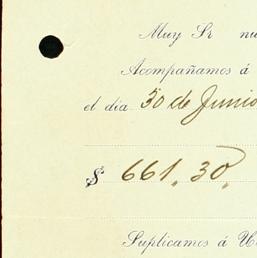 Muy Sr nu
Acompañamos á
el día 30 de Junio
$ 661,30,
Suplicamos á U